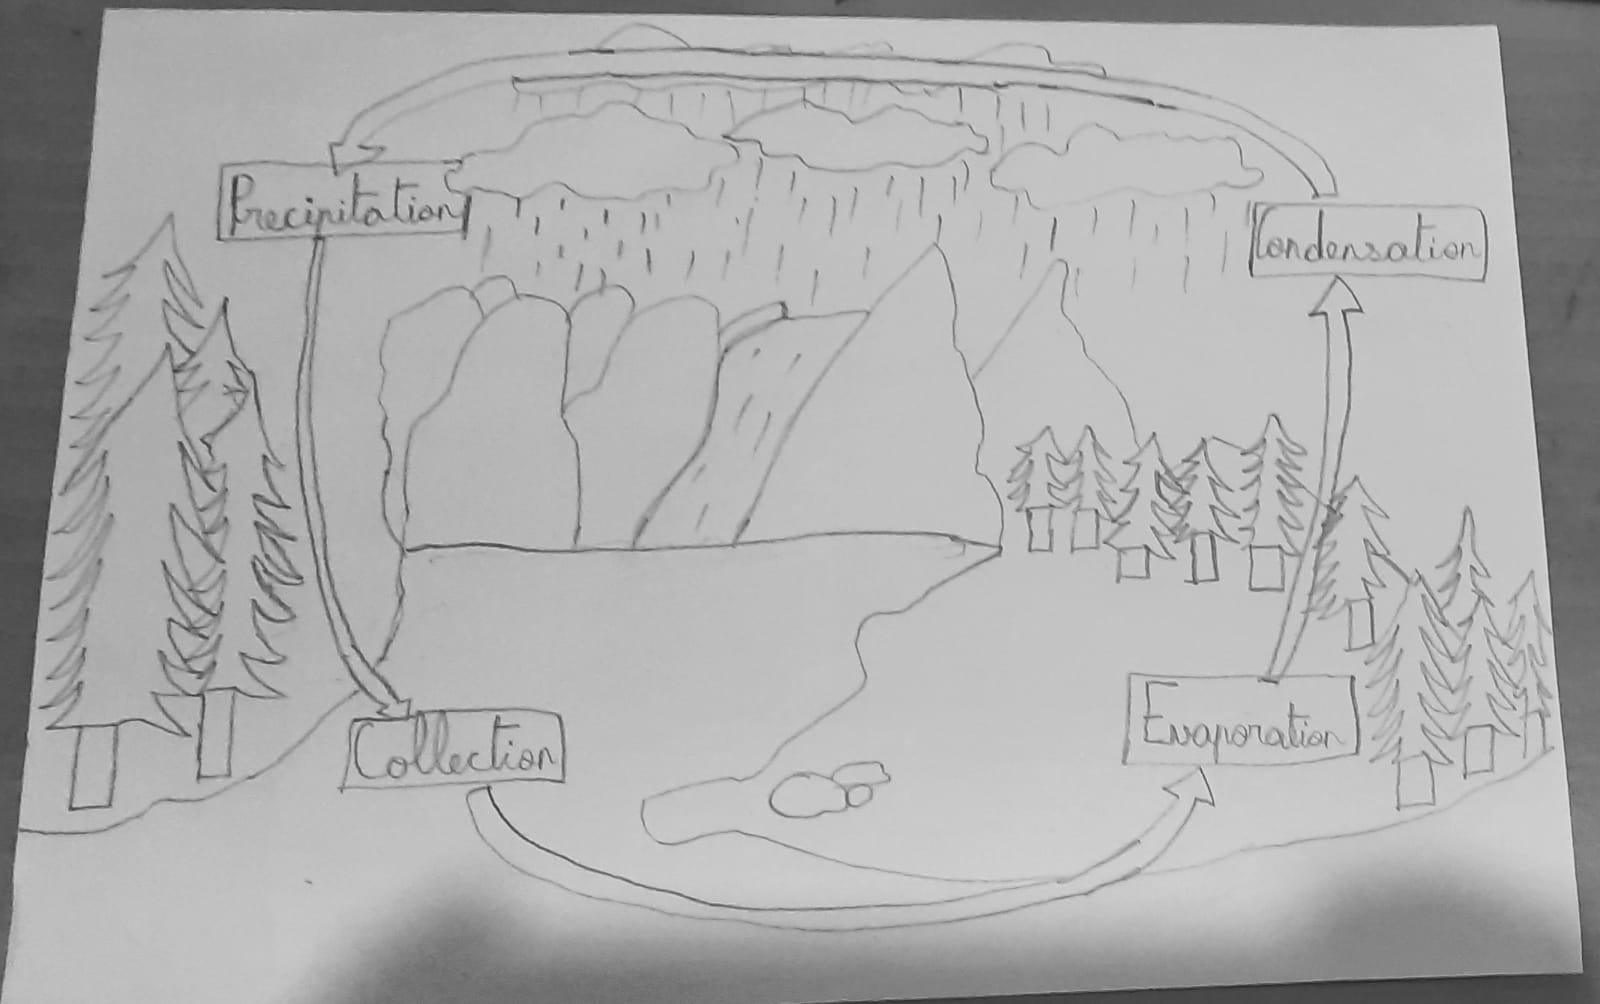 Precipitation
Condensation
Collection
Evaporation